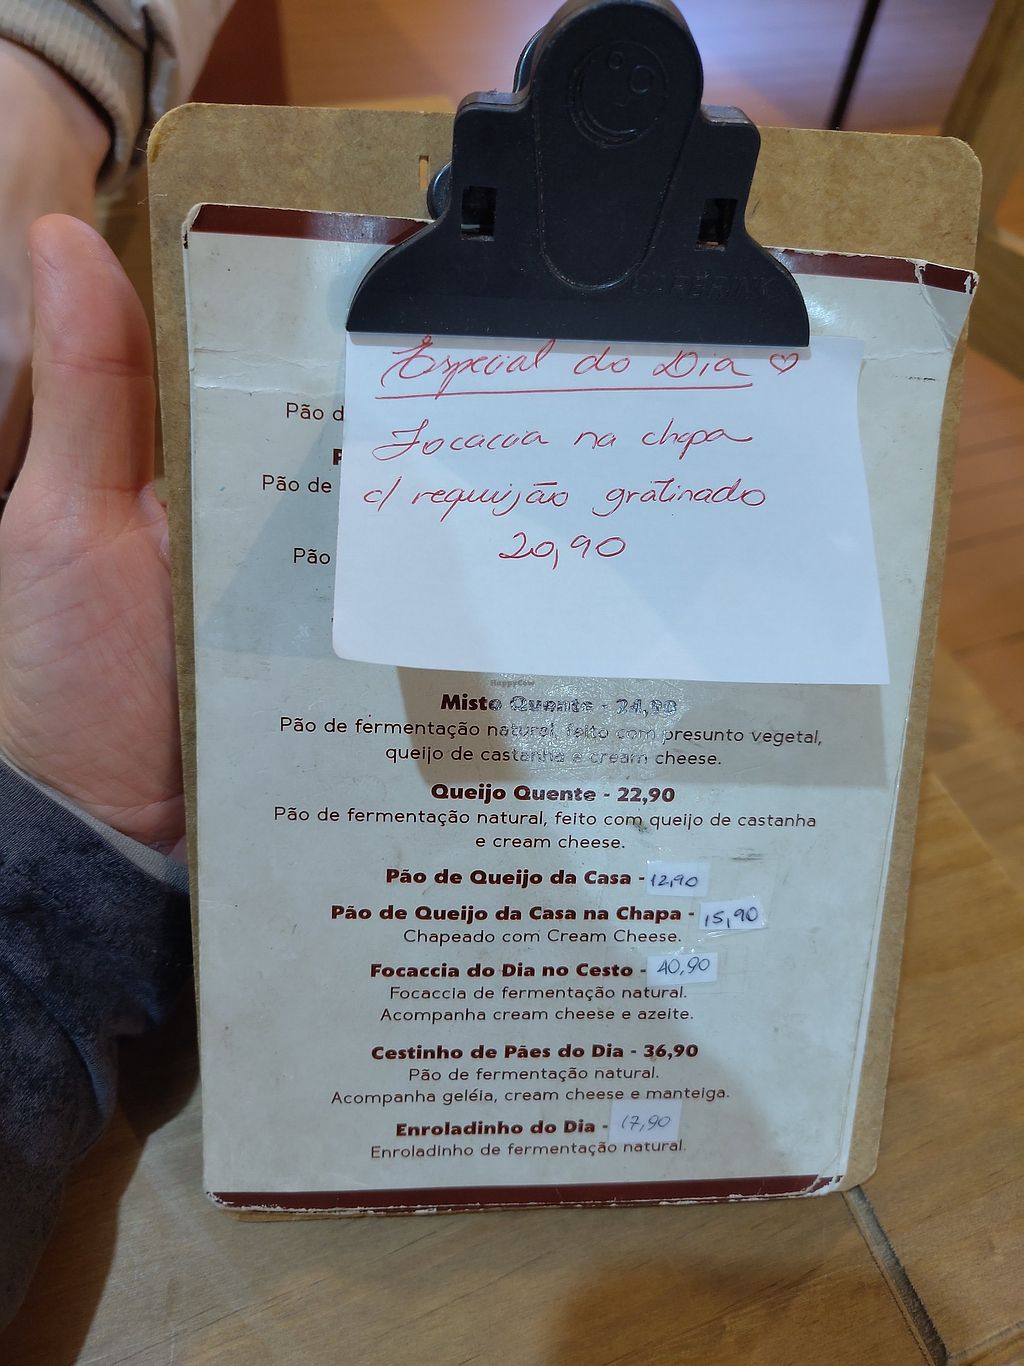 CARBRINK
Especial do Dia ♡
Focaccia na chapa
c/ requijão gratinado
20,90
Pão d
P
Pão de
Pão
HappyCow
Misto Quente - 24,90
Pão de fermentação natural, feito com presunto vegetal,
queijo de castanha e cream cheese.
Queijo Quente - 22,90
Pão de fermentação natural, feito com queijo de castanha
e cream cheese.
Pão de Queijo da Casa - 12,90
Pão de Queijo da Casa na Chapa - 15,90
Chapeado com Cream Cheese.
Focaccia do Dia no Cesto - 40,90
Focaccia de fermentação natural.
Acompanha cream cheese e azeite.
Cestinho de Pães do Dia - 36,90
Pão de fermentação natural.
Acompanha geléia, cream cheese e manteiga.
Enroladinho do Dia - 17,90
Enroladinho de fermentação natural.